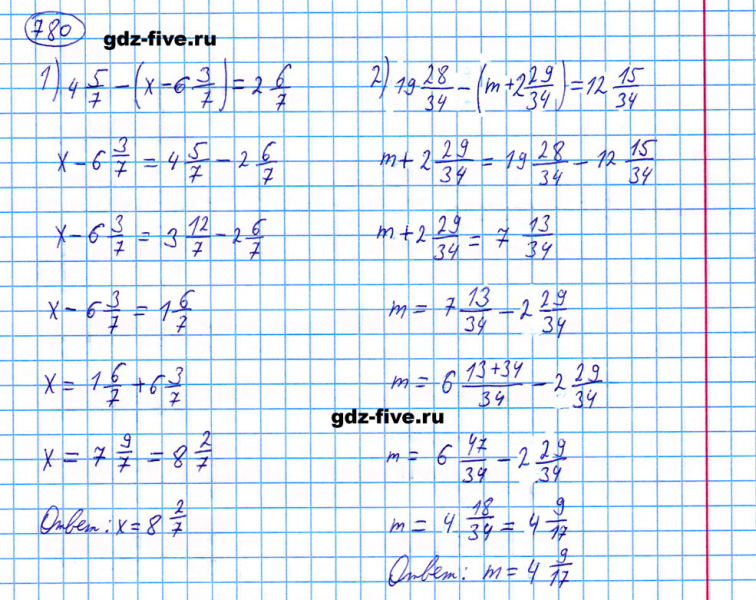 780
gdz-five.ru
1) 4 5/7 - (x - 6 3/7) = 2 6/7
x - 6 3/7 = 4 5/7 - 2 6/7
x - 6 3/7 = 3 12/7 - 2 6/7
x - 6 3/7 = 1 6/7
x = 1 6/7 + 6 3/7
x = 7 9/7 = 8 2/7
Ответ: x = 8 2/7
2) 19 28/34 - (m + 2 29/34) = 12 15/34
m + 2 29/34 = 19 28/34 - 12 15/34
m + 2 29/34 = 7 13/34
m = 7 13/34 - 2 29/34
m = 6 13+34/34 - 2 29/34
gdz-five.ru
m = 6 47/34 - 2 29/34
m = 4 18/34 = 4 9/17
Ответ: m = 4 9/17